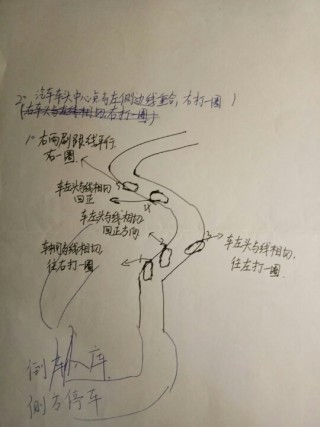 2° 汽车车头中心点与左侧边线重合，右打一圈）
（右车头与左线相切右打一圈）
1° 右雨刷跟线平行，
右一圈
车左头与线相切
回正
车左头与线相切，
回正方向
车左头与线相切，
往左打一圈
与线相切，
往右打一圈
倒车入库
侧方停车